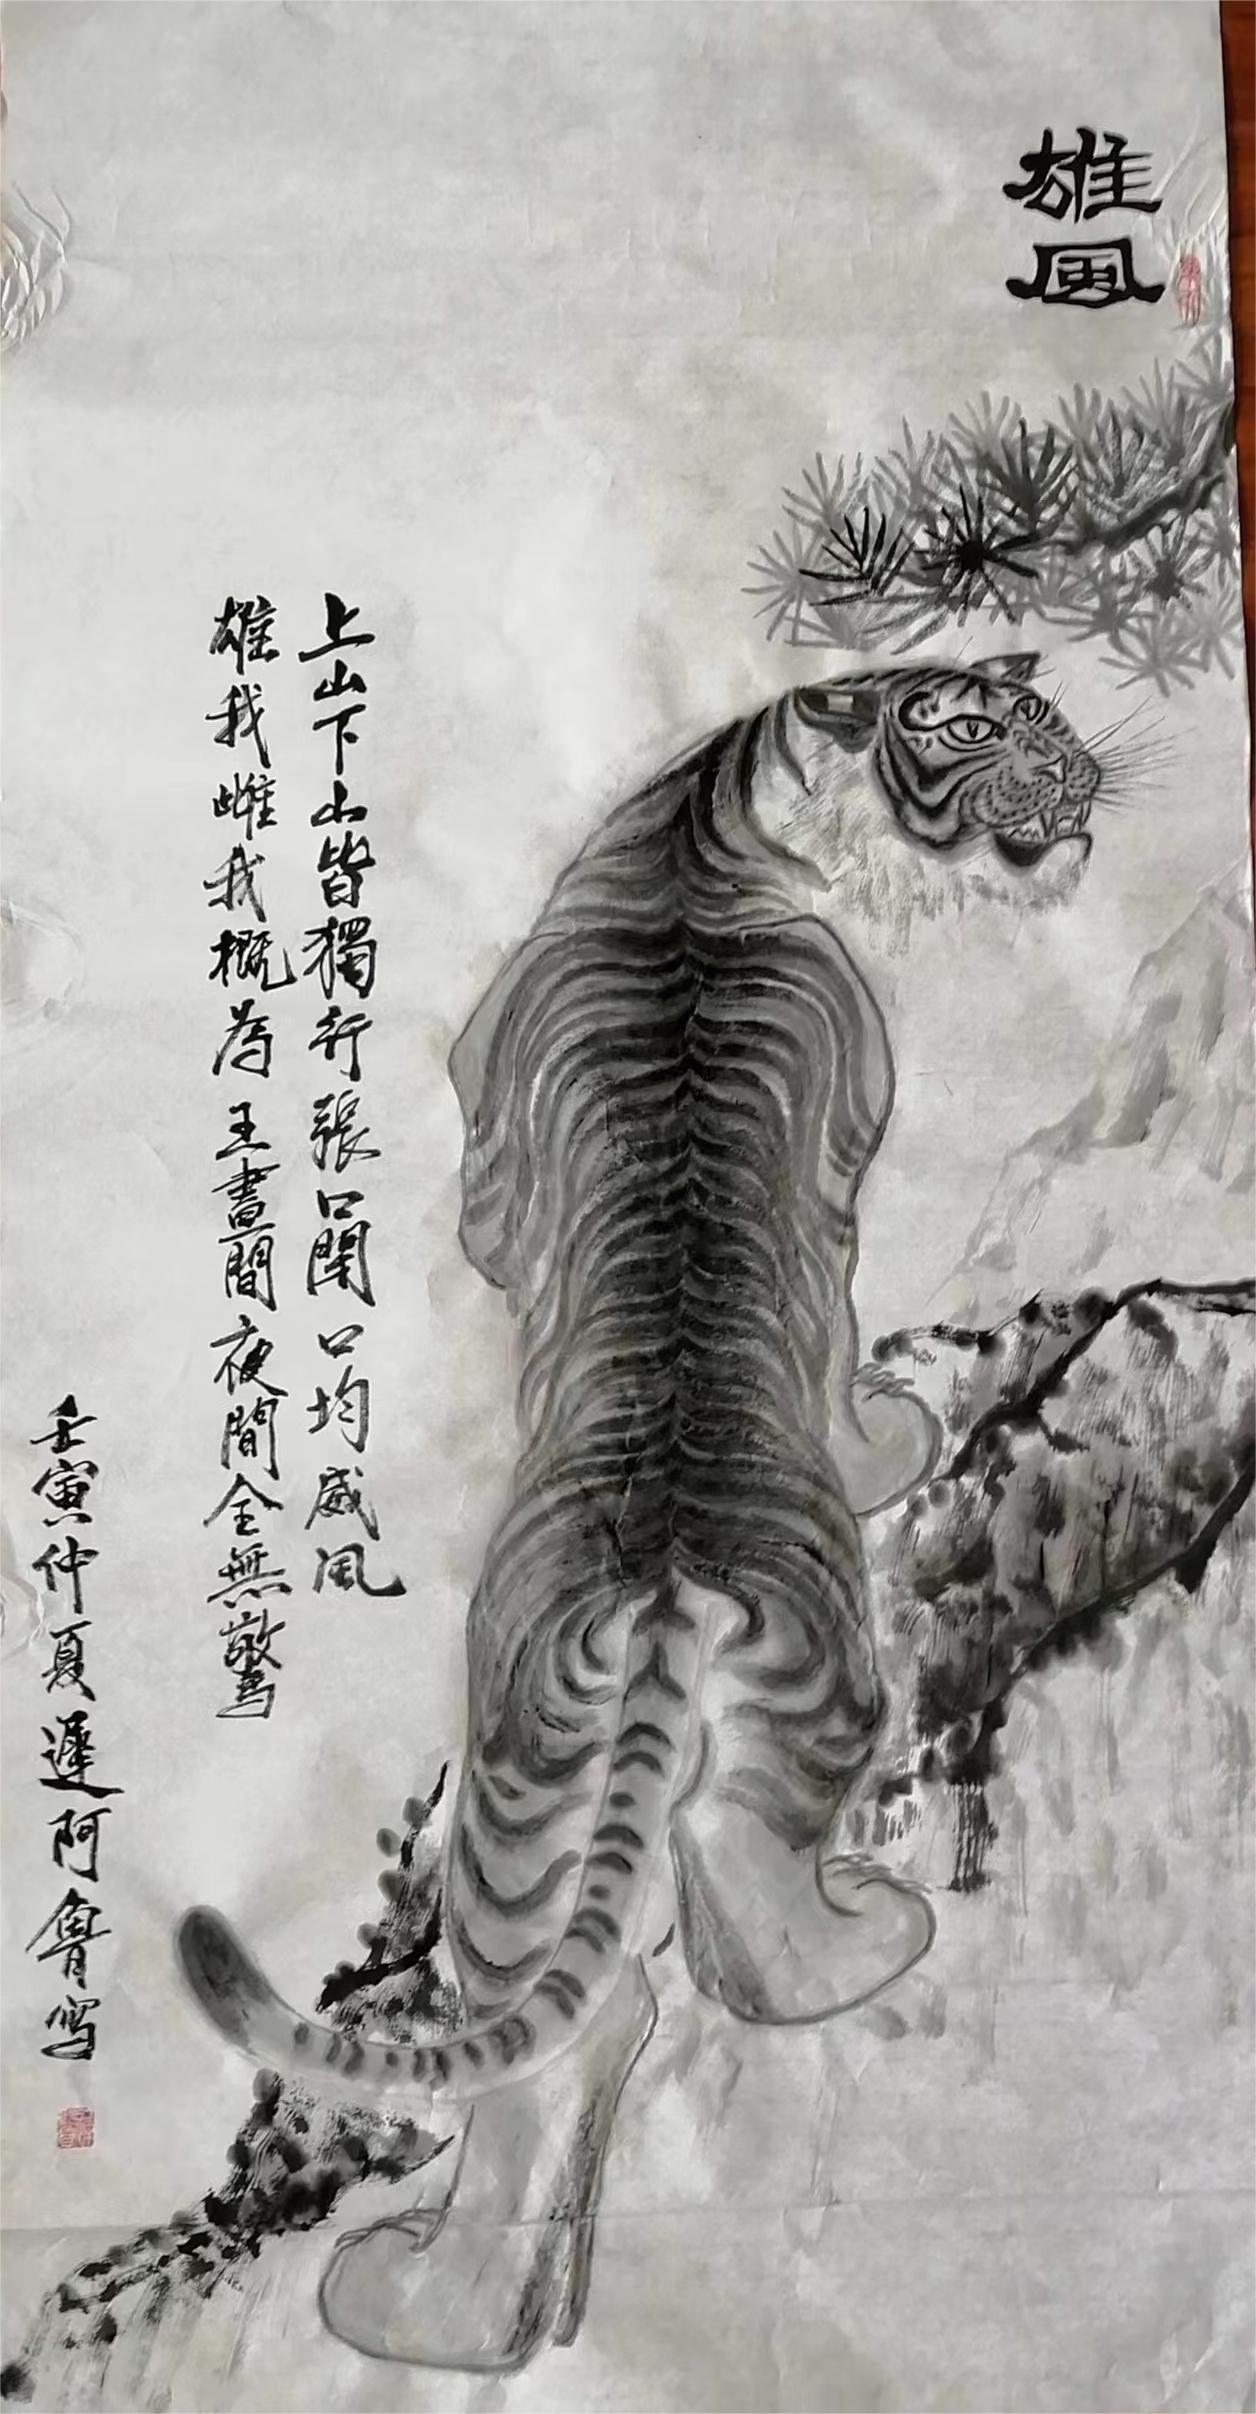 雄風
上山下山皆獨行張口閉口均威風
雄我雌我概為王晝間夜間全無驚
壬寅仲夏遲阿魯寫